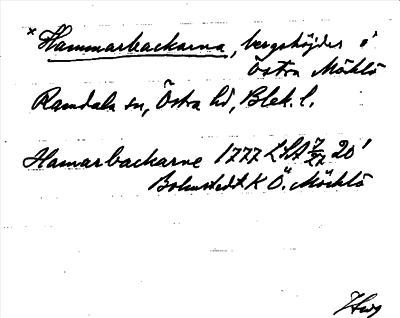 *Hammarbackarna, bergshöjder i
Östra Möcklö
Ramdala sn, Östra hd, Blek. l.
Hamarbackarne 1777 LSA 7/27 20'
Bohnstedt K Ö. Möcklö